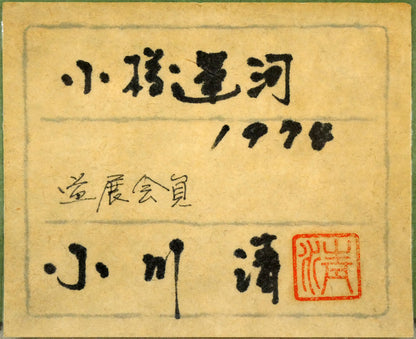 小樽運河
1974
道展会員
小川清
清